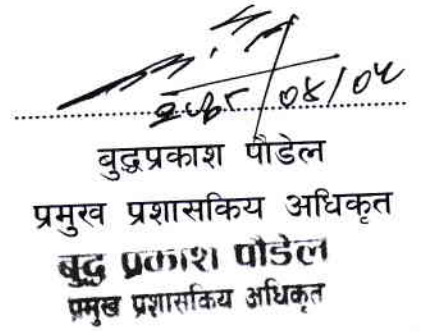 बुद्धप्रकाश पौडेल
प्रमुख प्रशासकिय अधिकृत
बुद्ध प्रकाश पौडेल
प्रमुख प्रशासकिय अधिकृत